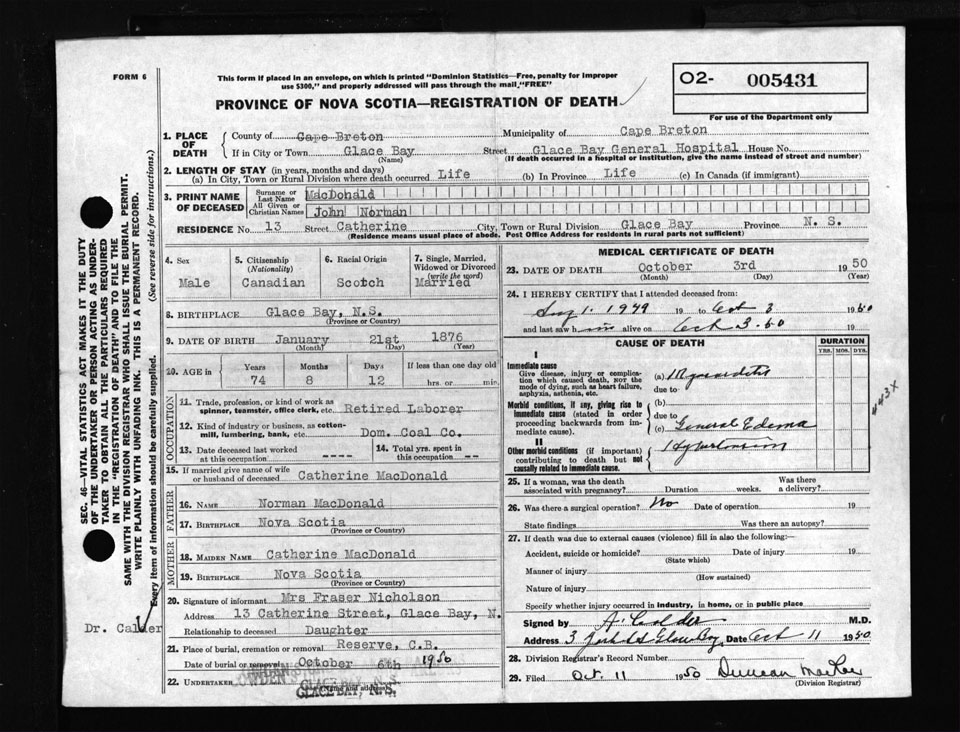 FORM 6
This form if placed in an envelope, on which is printed "Dominion Statistics—Free, penalty for improper
use $300," and properly addressed will pass through the mail "FREE"
PROVINCE OF NOVA SCOTIA—REGISTRATION OF DEATH
O2- 005431
For use of the Department only
SEC. 46—VITAL STATISTICS ACT MAKES IT THE DUTY
OF THE UNDERTAKER OR PERSON ACTING AS UNDER-
TAKER TO OBTAIN ALL THE PARTICULARS REQUIRED
IN THE "REGISTRATION OF DEATH" AND TO FILE THE
SAME WITH THE DIVISION REGISTRAR WHO SHALL ISSUE THE BURIAL PERMIT.
WRITE PLAINLY WITH UNFADING INK. THIS IS A PERMANENT RECORD.
Every item of information should be carefully supplied. (See reverse side for instructions.)
Dr. Calder
1. PLACE OF DEATH
County of Cape Breton Municipality of Cape Breton
If in City or Town Glace Bay Street Glace Bay General Hospital House No.
(Name) (If death occurred in a hospital or institution, give the name instead of street and number)
2. LENGTH OF STAY (in years, months and days)
(a) In City, Town or Rural Division where death occurred Life (b) In Province Life (c) In Canada (if immigrant)
3. PRINT NAME OF DECEASED
Surname or Last Name MacDonald
All Given or Christian Names John Norman
RESIDENCE No. 13 Street Catherine City, Town or Rural Division Glace Bay Province N. S.
(Residence means usual place of abode. Post Office Address for residents in rural parts not sufficient)
4. Sex Male
5. Citizenship (Nationality) Canadian
6. Racial Origin Scotch
7. Single, Married, Widowed or Divorced (write the word) Married
8. BIRTHPLACE Glace Bay, N.S.
(Province or Country)
9. DATE OF BIRTH January 21st 1876
(Month) (Day) (Year)
10. AGE in Years Months Days If less than one day old
74 8 12 hrs. or min.
OCCUPATION
11. Trade, profession, or kind of work as
spinner, teamster, office clerk, etc. Retired Laborer
12. Kind of industry or business, as cotton-
mill, lumbering, bank, etc. Dom. Coal Co.
13. Date deceased last worked at this occupation ----
14. Total yrs. spent in this occupation --
15. If married give name of wife
or husband of deceased Catherine MacDonald
FATHER
16. NAME Norman MacDonald
17. BIRTHPLACE Nova Scotia
(Province or Country)
MOTHER
18. MAIDEN NAME Catherine MacDonald
19. BIRTHPLACE Nova Scotia
(Province or Country)
20. Signature of informant Mrs Fraser Nicholson
Address 13 Catherine Street, Glace Bay, N.
Relationship to deceased Daughter
21. Place of burial, cremation or removal Reserve, C.B.
Date of burial or removal October 6th 1950
22. UNDERTAKER
(Name and address)
GLACE BAY, N. S.
MEDICAL CERTIFICATE OF DEATH
23. DATE OF DEATH October 3rd 1950
(Month) (Day) (Year)
24. I HEREBY CERTIFY that I attended deceased from:
Aug 1. 1949 19 to Oct 3 1950
and last saw him alive on Oct 3. 50 19
CAUSE OF DEATH
DURATION
YRS. MOS. DYS.
I
Immediate cause
Give disease, injury or complica-
tion which caused death, NOT the
mode of dying, such as heart failure,
asphyxia, asthenia, etc.
(a) Myocarditis
due to
Morbid conditions, if any, giving rise to
immediate cause (stated in order
proceeding backwards from im-
mediate cause).
(b)
due to
(c) General Edema
II
Other morbid conditions (if important)
contributing to death but not
causally related to immediate cause.
Hypertension
443X
25. If a woman, was the death
associated with pregnancy? Duration weeks. Was there a delivery?
26. Was there a surgical operation? No Date of operation 19
State findings Was there an autopsy?
27. If death was due to external causes (violence) fill in also the following:—
Accident, suicide or homicide? Date of injury 19
(State which)
Manner of injury
(How sustained)
Nature of injury
Specify whether injury occurred in industry, in home, or in public place
Signed by A. Calder M.D.
Address 3 York St Glace Bay Date Oct 11 1950
28. Division Registrar's Record Number
29. Filed Oct. 11 1950 Duncan
(Division Registrar)